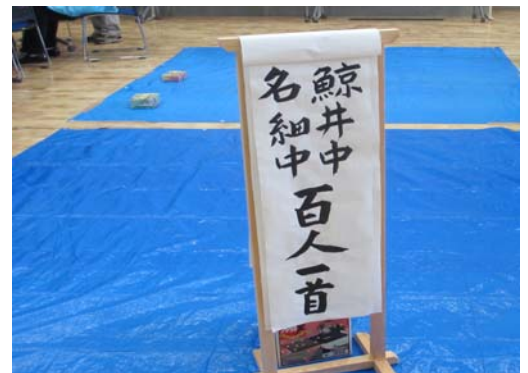 鯨井中
名細中
百人一首